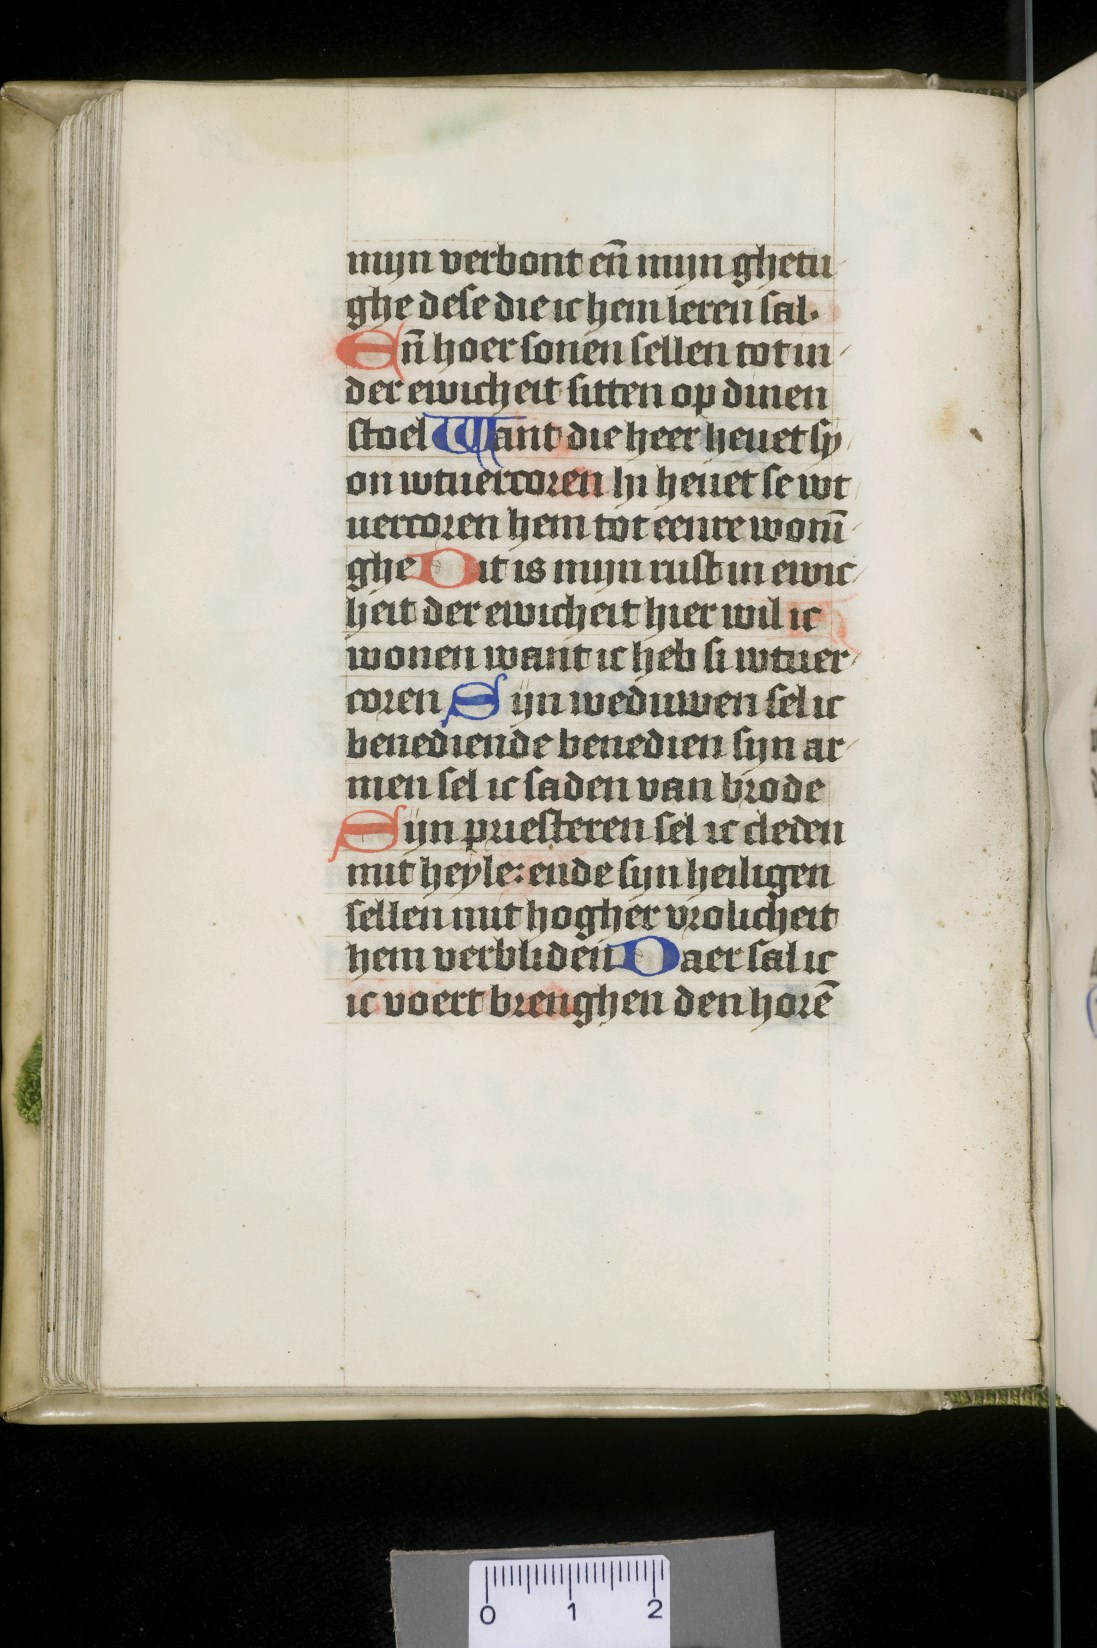 mijn verbont eñ mijn ghetu
ghe dese die ic hem leren sal.
Eñ hoer sonen sellen tot in
der ewicheit sitten op dinen
stoel Want die heer heuet sy
on wtuercoren hi heuet se wt
uercoren hem tot eenre wonī
ghe Dit is mijn rust in ewic
heit der ewicheit hier wil ic
wonen want ic heb si wtuer
coren Sijn weduwen sel ic
benediende benedien sijn ar
men sel ic saden van brode
Sijn priesteren sel ic cleden
mit heyle: ende sijn heiligen
sellen mit hogher vrolicheit
hem verbliden Daer sal ic
ic voert brenghen den horē
0 1 2